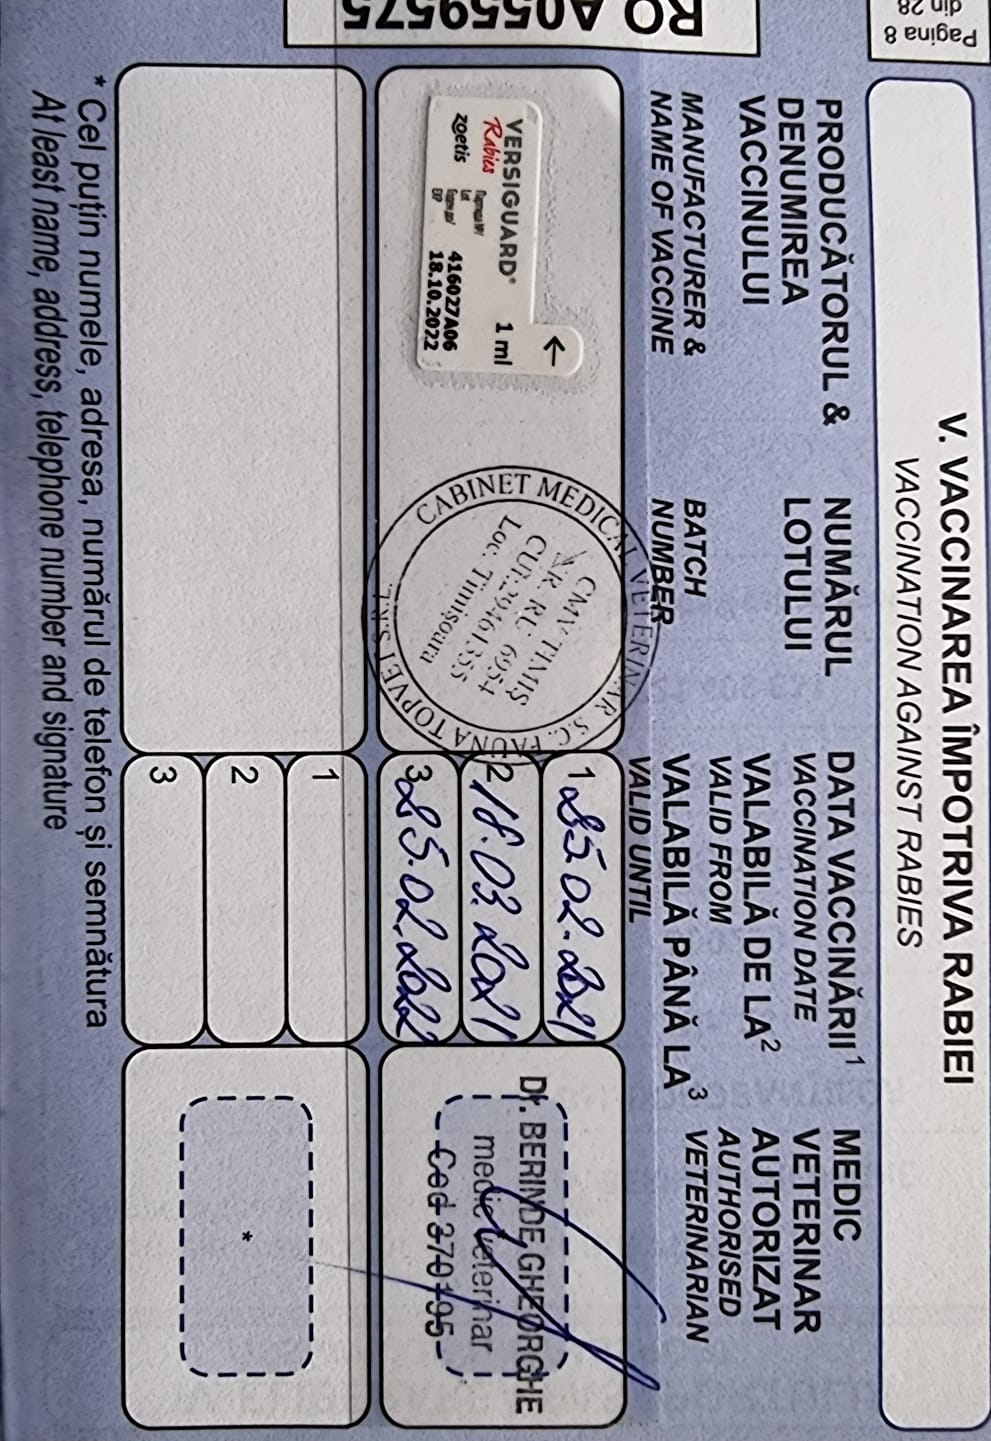 Pagina 8
din 28
V. VACCINAREA ÎMPOTRIVA RABIEI
VACCINATION AGAINST RABIES
PRODUCĂTORUL &
DENUMIREA
VACCINULUI
MANUFACTURER &
NAME OF VACCINE
NUMĂRUL
LOTULUI
BATCH
NUMBER
DATA VACCINĂRII¹
VACCINATION DATE
VALABILĂ DE LA²
VALID FROM
VALABILĂ PÂNĂ LA³
VALID UNTIL
MEDIC
VETERINAR
AUTORIZAT
AUTHORISED
VETERINARIAN
VERSIGUARD®
Rabies
1 ml
zoetis
Lot
416027A06
EXP
18.10.2022
CABINET MEDICAL VETERINAR S.C. FAUNA TOPVET S.R.L.
CMV TIMIȘ
Loc. Timișoara
1 25.02.2021
2 18.03.2021
3 25.02.2022
Dr. BERINDE GHEORGHE
medic veterinar
1
2
3
*
* Cel puțin numele, adresa, numărul de telefon și semnătura
At least name, address, telephone number and signature
RO A0559575